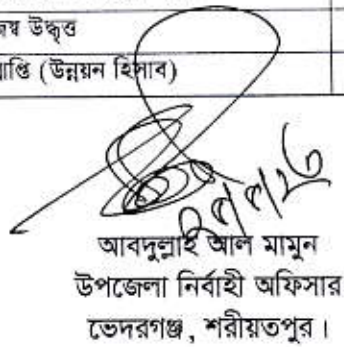 উদ্ধৃত্ত
(উন্নয়ন হিসাব)
আবদুল্লাহ আল মামুন
উপজেলা নির্বাহী অফিসার
ভেদরগঞ্জ, শরীয়তপুর।